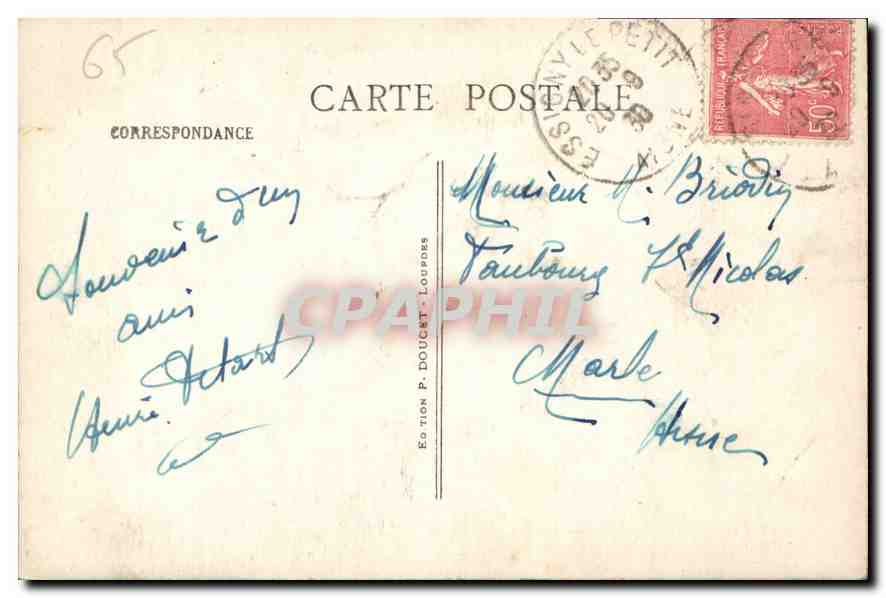 65
CARTE POSTALE
CORRESPONDANCE
ESSIGNY LE PETIT
AISNE
20 35
20 8
30
REPUBLIQUE FRANÇAISE
50c
Souvenir d'un
ami
Henri
EDITION P. DOUCET - LOURDES
Monsieur
Faubourg St Nicolas
Marle
Aisne
CPAPHIL